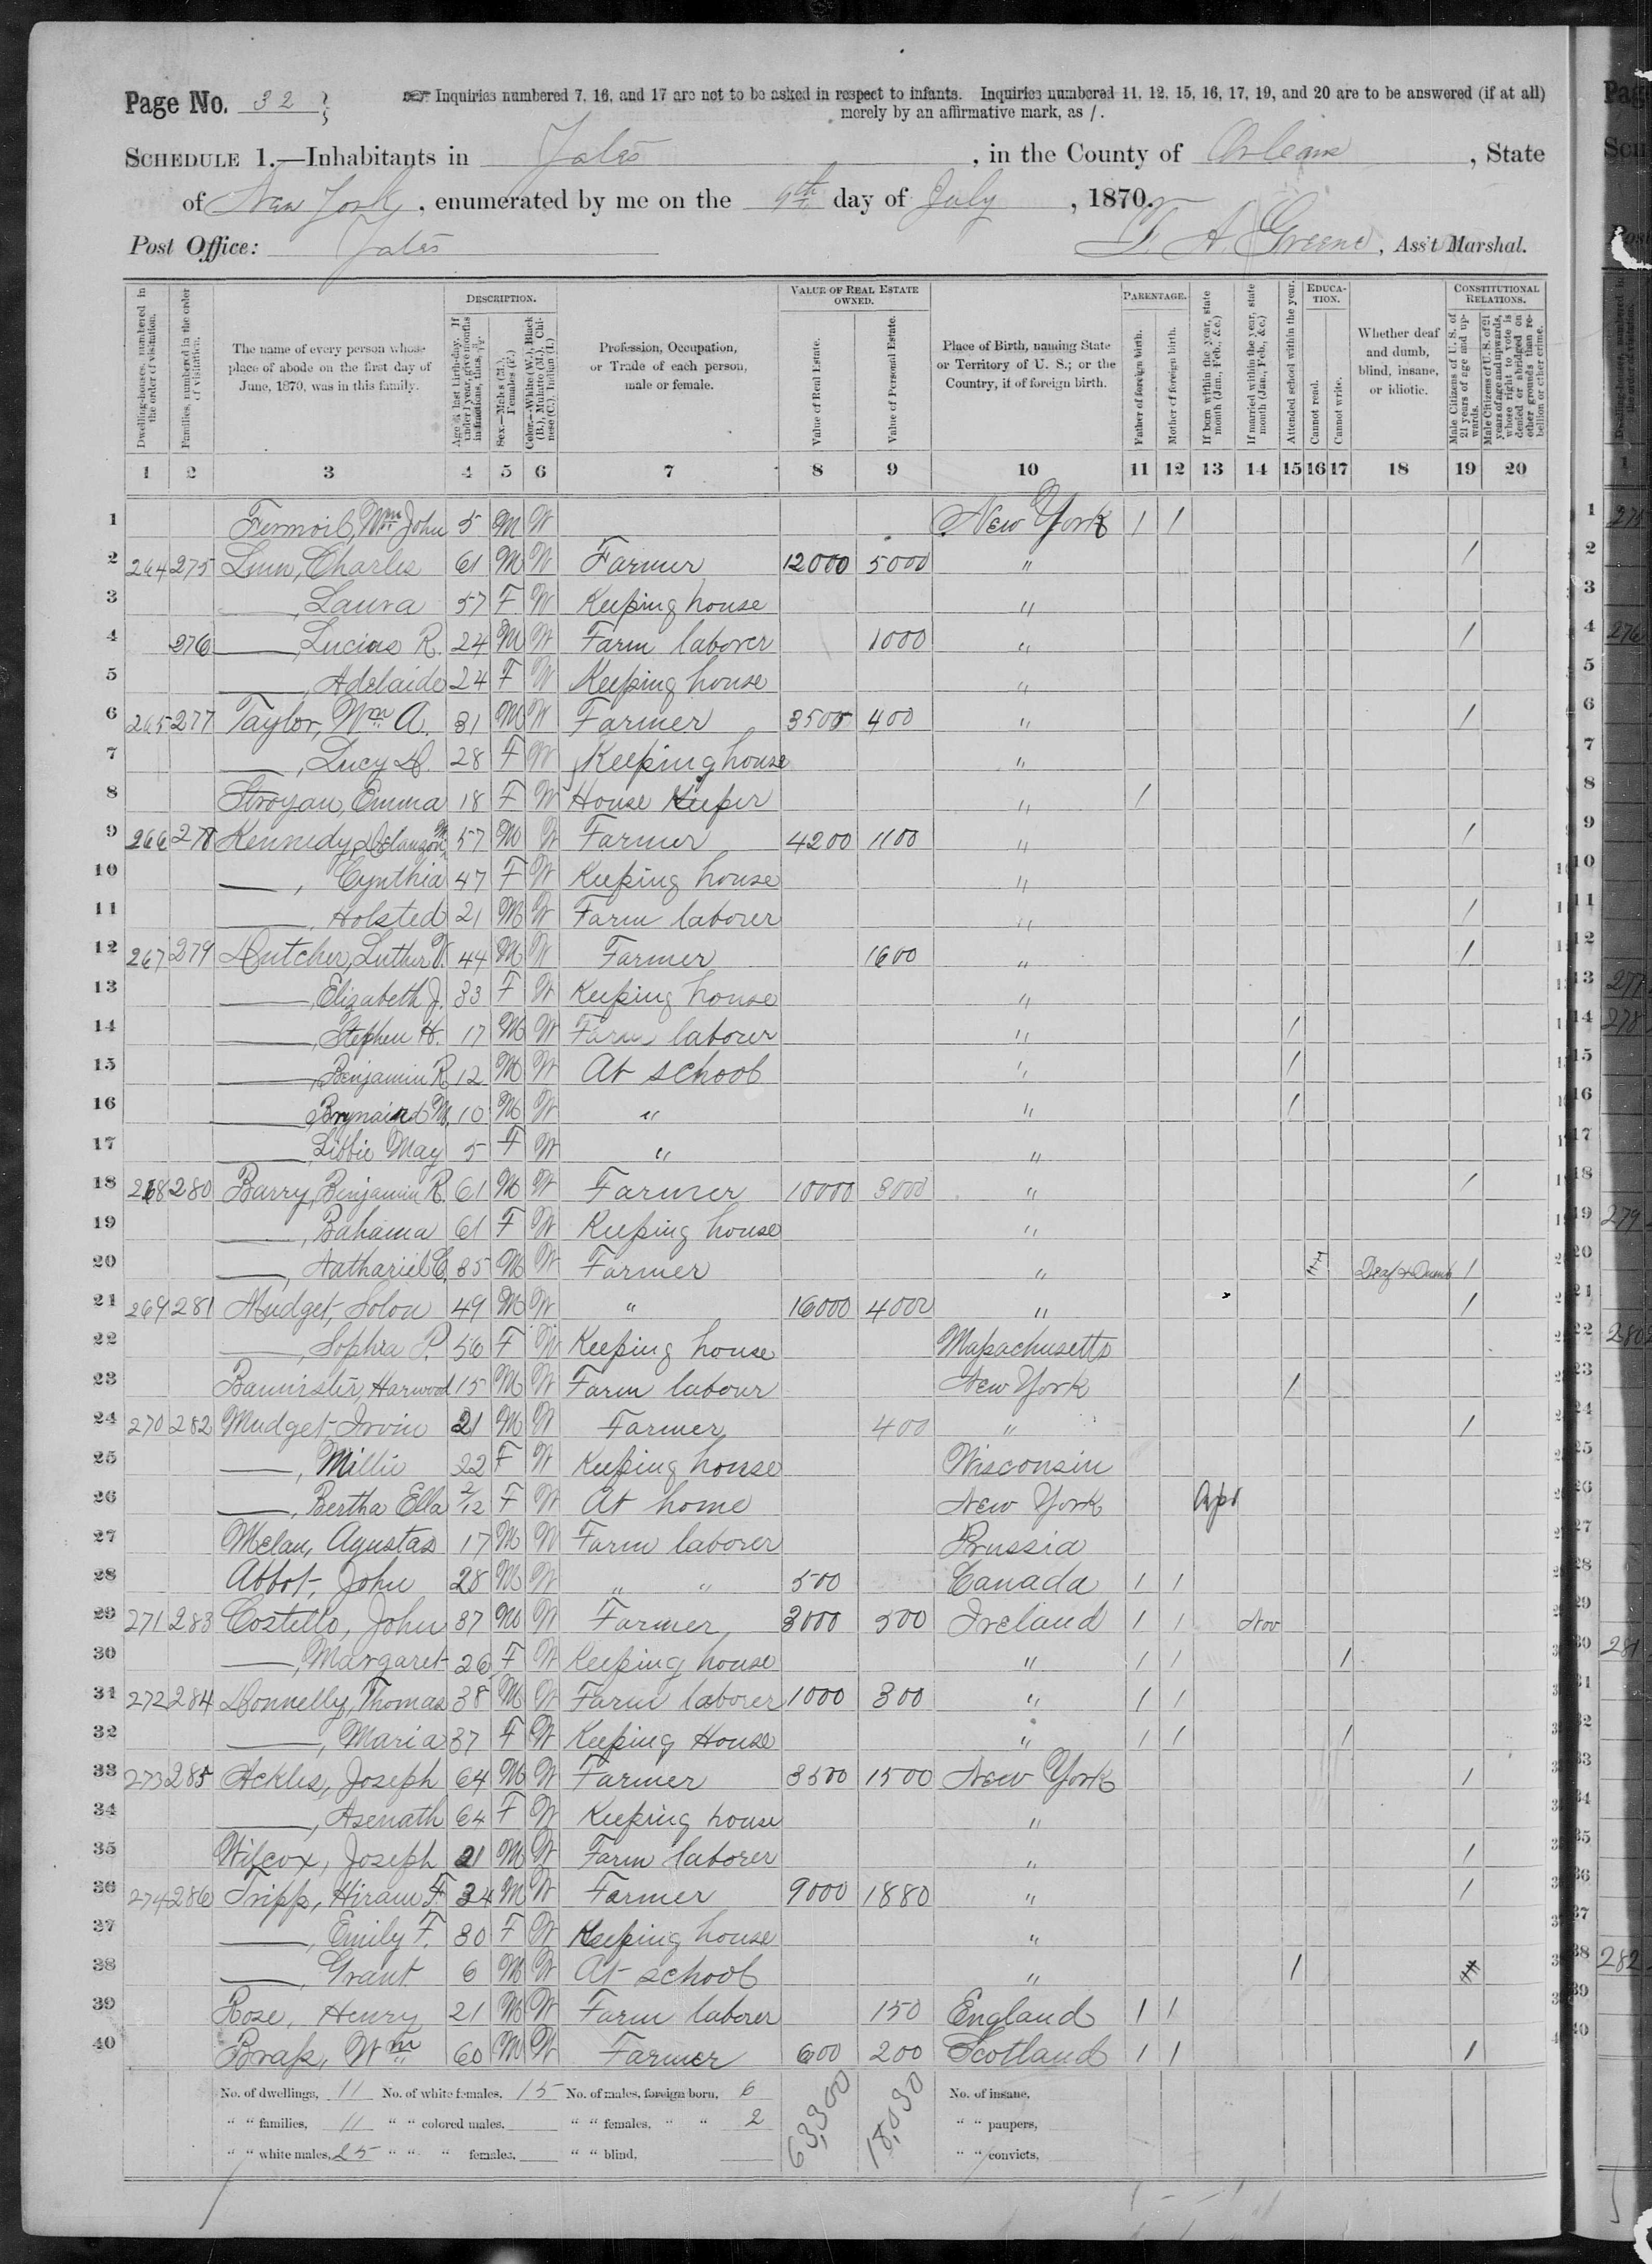 Page No. 32
Inquiries numbered 7, 16, and 17 are not to be asked in respect to infants. Inquiries numbered 11, 12, 15, 16, 17, 19, and 20 are to be answered (if at all)
merely by an affirmative mark, as /.
SCHEDULE 1.—Inhabitants in Yates, in the County of Orleans, State
of New York, enumerated by me on the 9th day of July, 1870.
Post Office: Yates
T. A. Greene, Ass't Marshal.
Dwelling-houses, numbered in the order of visitation.
Families, numbered in the order of visitation.
The name of every person whose place of abode on the first day of June, 1870, was in this family.
DESCRIPTION.
Age at last birth-day. If under 1 year, give months in fractions, thus, 3/12.
Sex.—Males (M.), Females (F.)
Color.—White (W.), Black (B.), Mulatto (M.), Chinese (C.), Indian (I.)
Profession, Occupation, or Trade of each person, male or female.
VALUE OF REAL ESTATE OWNED.
Value of Real Estate.
Value of Personal Estate.
Place of Birth, naming State or Territory of U. S.; or the Country, if of foreign birth.
PARENTAGE.
Father of foreign birth.
Mother of foreign birth.
If born within the year, state month (Jan., Feb., &c.)
If married within the year, state month (Jan., Feb., &c.)
Attended school within the year.
EDUCATION.
Cannot read.
Cannot write.
Whether deaf and dumb, blind, insane, or idiotic.
CONSTITUTIONAL RELATIONS.
Male Citizens of U. S. of 21 years of age and upwards.
Male Citizens of U. S. of 21 years of age and upwards, whose right to vote is denied or abridged on other grounds than rebellion or other crime.
1 2 3 4 5 6 7 8 9 10 11 12 13 14 15 16 17 18 19 20
1 Wm John 5 M W New York / /
2 264 275 Linn, Charles 61 M W Farmer 12000 5000 " /
3 ——, Laura 57 F W Keeping house "
4 276 ——, Lucias R. 24 M W Farm laborer 1000 " /
5 ——, Adelaide 24 F W Keeping house "
6 265 277 Taylor, Wm A. 31 M W Farmer 3500 400 " /
7 ——, Lucy D. 28 F W Keeping house "
8 Stroyan, Emma 18 F W House Keeper " /
9 266 278 Kennedy, M 57 M W Farmer 4200 1100 " /
10 ——, Cynthia 47 F W Keeping house "
11 ——, Holsted 21 M W Farm laborer " /
12 267 279 Dutcher, Luther V. 44 M W Farmer 1600 " /
13 ——, Elizabeth J. 33 F W Keeping house "
14 ——, Stephen H. 17 M W Farm laborer " /
15 ——, Benjamin R. 12 M W At school " /
16 ——, Brynaird M. 10 M W " " /
17 ——, Libbie May 5 F W " "
18 268 280 Barry, Benjamin R. 61 M W Farmer 10000 3000 " /
19 ——, Bahama 61 F W Keeping house "
20 ——, Nathaniel C. 35 M W Farmer " Deaf & Dumb /
21 269 281 Mudget, Solon 49 M W " 16000 4000 " /
22 ——, Sophia P. 50 F W Keeping house Massachusetts
23 Bannister, Harwood 15 M W Farm labour New York /
24 270 282 Mudget, Irvin 21 M W Farmer 400 " /
25 ——, Millie 22 F W Keeping house Wisconsin
26 ——, Bertha Ella 2/12 F W At home New York Apr
27 Melau, Agustas 17 M W Farm laborer Prussia
28 Abbot, John 28 M W " " 500 Canada / /
29 271 283 Costello, John 37 M W Farmer 3000 500 Ireland / / Nov
30 ——, Margaret 26 F W Keeping house " / / /
31 272 284 Donnelly, Thomas 38 M W Farm laborer 1000 300 " / /
32 ——, Maria 37 F W Keeping House " / / /
33 273 285 Ackles, Joseph 64 M W Farmer 3500 1500 New York /
34 ——, Asenath 64 F W Keeping house "
35 Wilcox, Joseph 21 M W Farm laborer " /
36 274 286 Tripp, Hiram F. 34 M W Farmer 9000 1880 " /
37 ——, Emily F. 30 F W Keeping house "
38 ——, Grant 6 M W At school " /
39 Rose, Henry 21 M W Farm laborer 150 England / /
40 Brass, Wm 60 M W Farmer 600 200 Scotland / / /
No. of dwellings, 11 No. of white females, 15 No. of males, foreign born, 6 63,300 No. of insane,
" " families, 11 " " colored males, " " females, " " 2 " " paupers,
" " white males, 25 " " " females, " " blind, " " convicts,